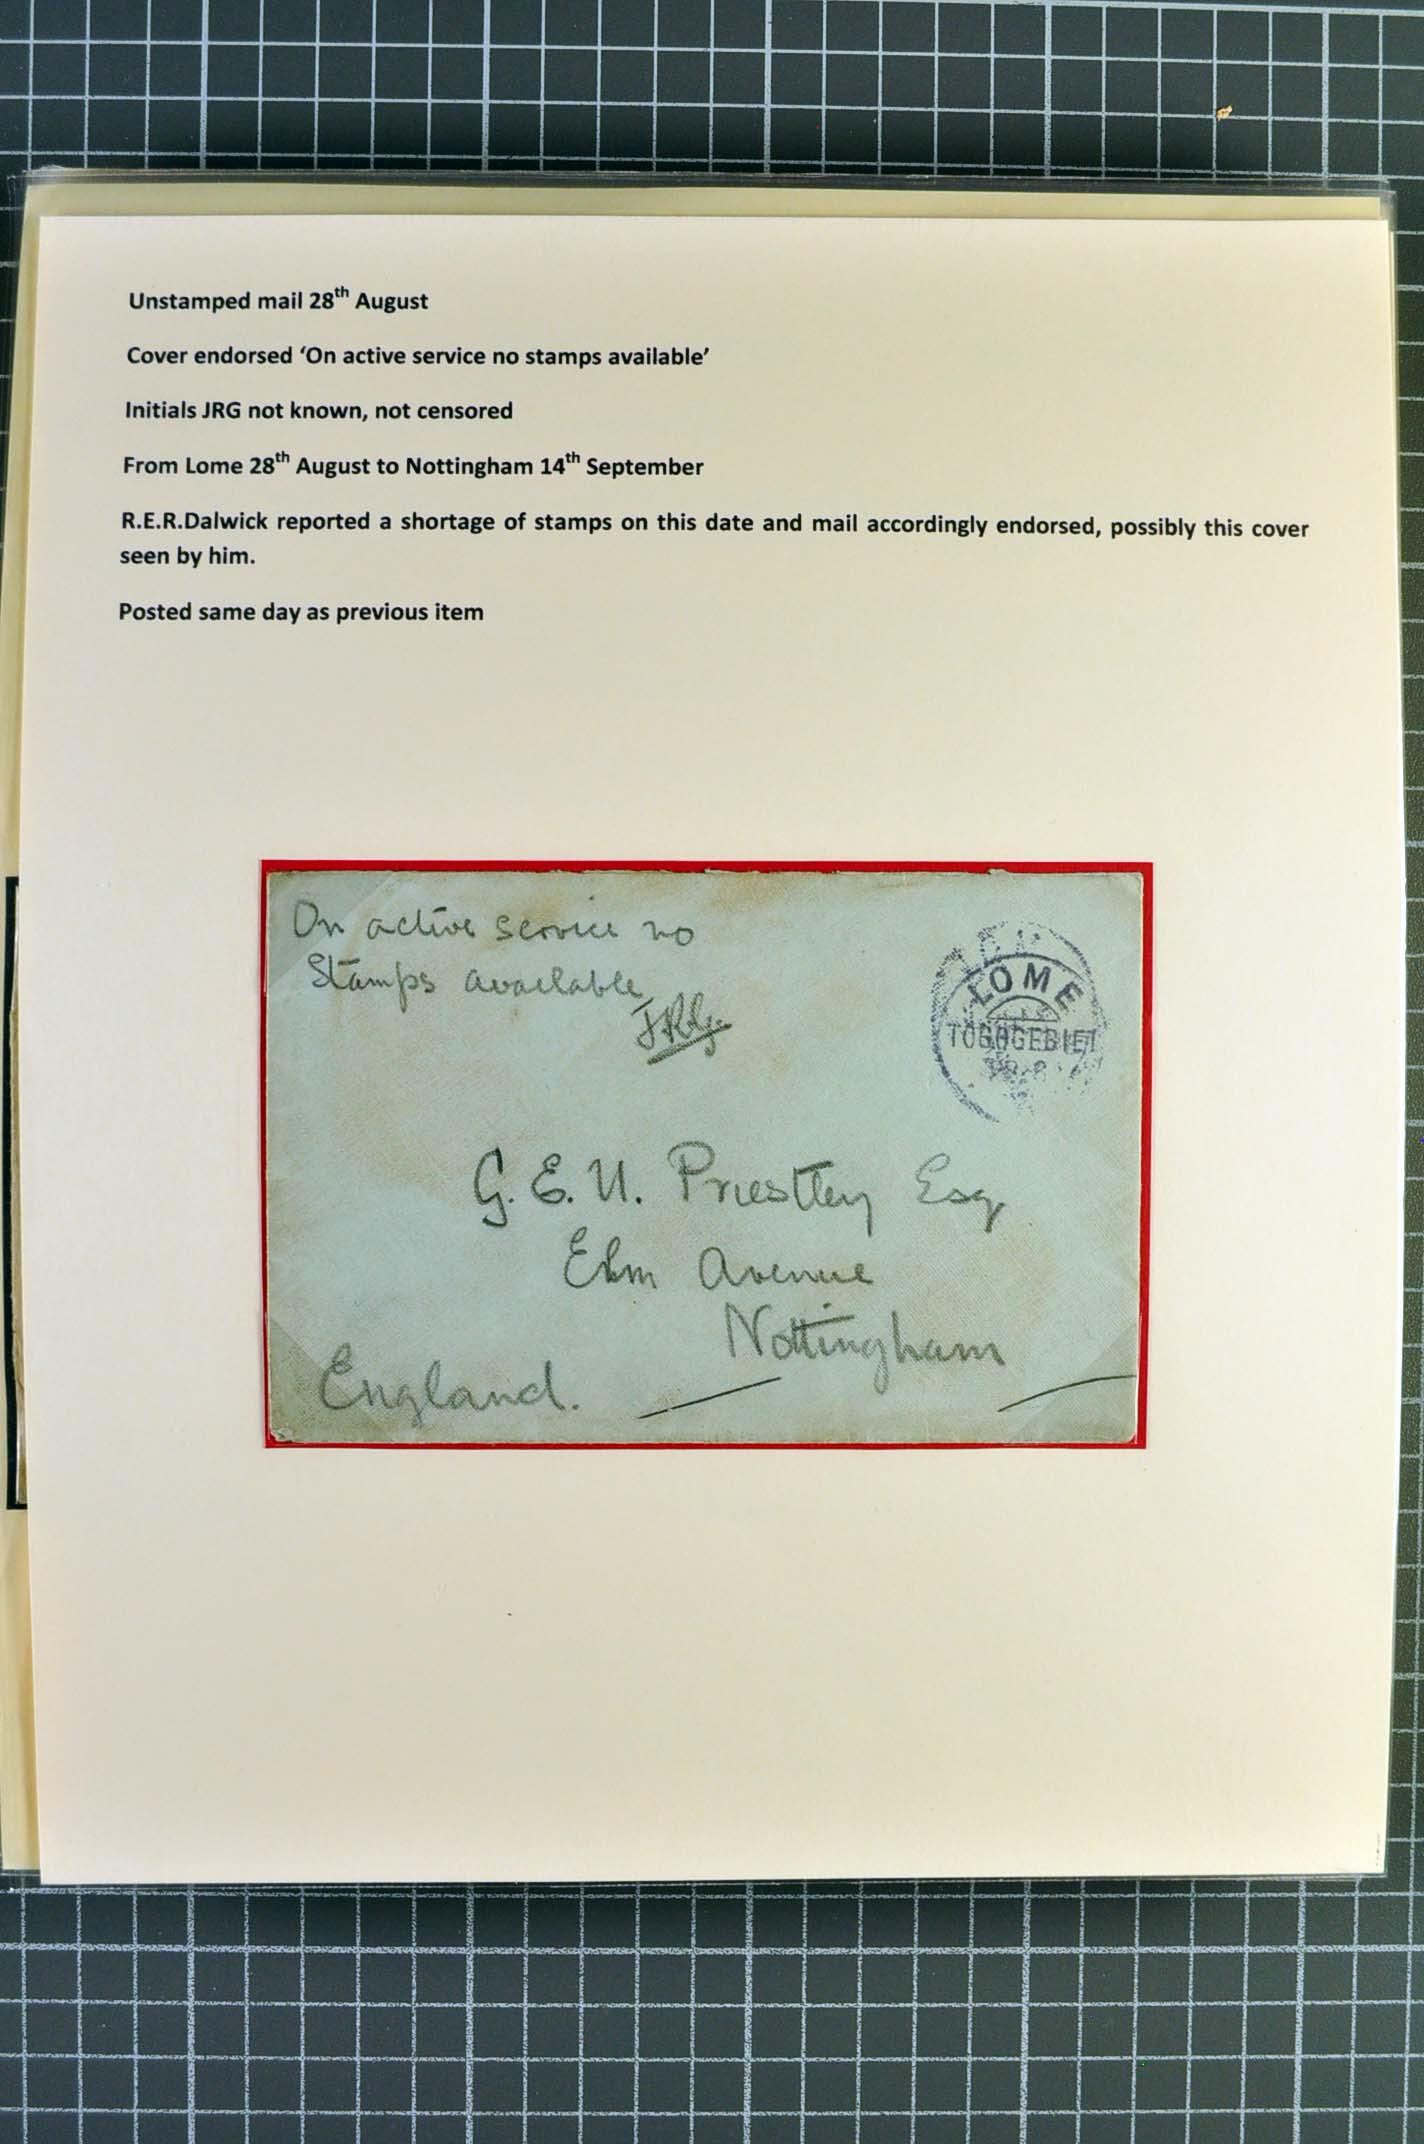 Unstamped mail 28th August
Cover endorsed ‘On active service no stamps available’
Initials JRG not known, not censored
From Lome 28th August to Nottingham 14th September
R.E.R.Dalwick reported a shortage of stamps on this date and mail accordingly endorsed, possibly this cover
seen by him.
Posted same day as previous item
On active service no
Stamps available
JRG.
LOME
TOGOGEBIET
G. E. U. Priestley Esq
Elm Avenue
Nottingham
England.